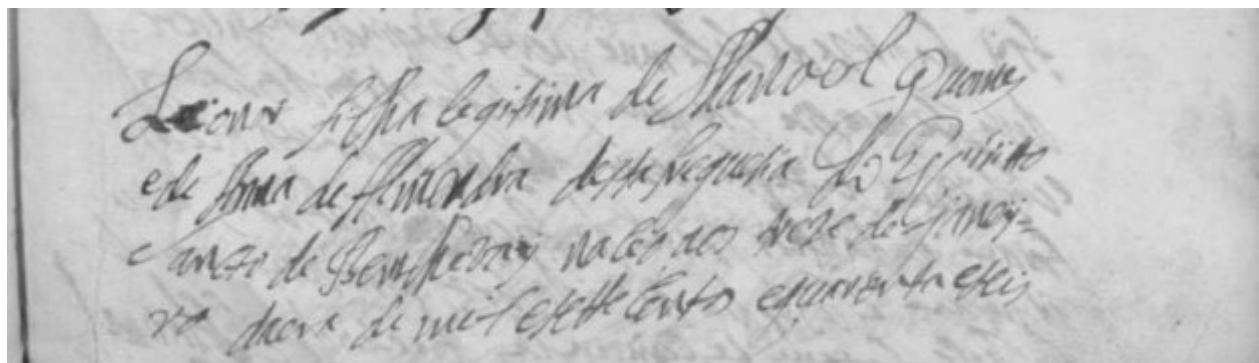 Leonor filha legitima de Manoel Gomes
e de Anna de Almeida desta freguesia do Espirito
Santo de naceo aos treze de Janey=
ro da era de mil e sette centos e quarenta e seis